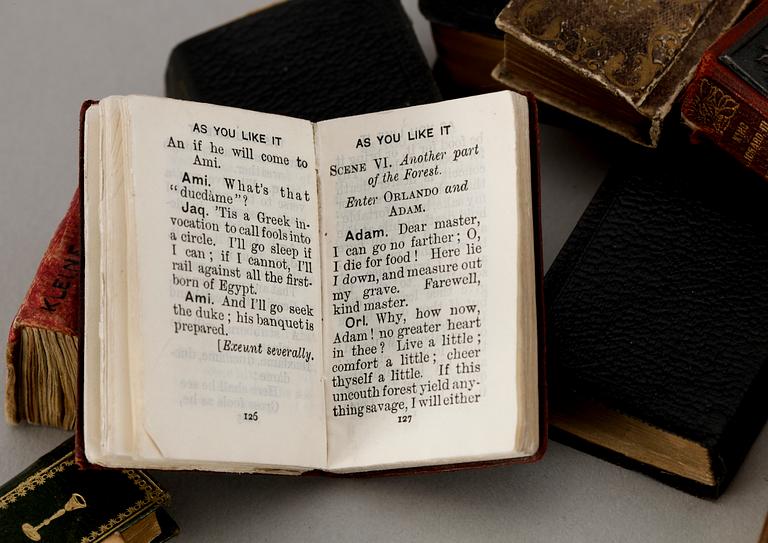 AS YOU LIKE IT
An if he will come to
Ami.
Ami. What's that
"ducdàme"?
Jaq. 'Tis a Greek in-
vocation to call fools into
a circle. I'll go sleep if
I can; if I cannot, I'll
rail against all the first-
born of Egypt.
Ami. And I'll go seek
the duke; his banquet is
prepared.
[Exeunt severally.
126
AS YOU LIKE IT
SCENE VI. Another part
of the Forest.
Enter ORLANDO and
ADAM.
Adam. Dear master,
I can go no farther; O,
I die for food! Here lie
I down, and measure out
my grave. Farewell,
kind master.
Orl. Why, how now,
Adam! no greater heart
in thee? Live a little;
comfort a little; cheer
thyself a little. If this
uncouth forest yield any-
thing savage, I will either
127
KING
RICHARD II